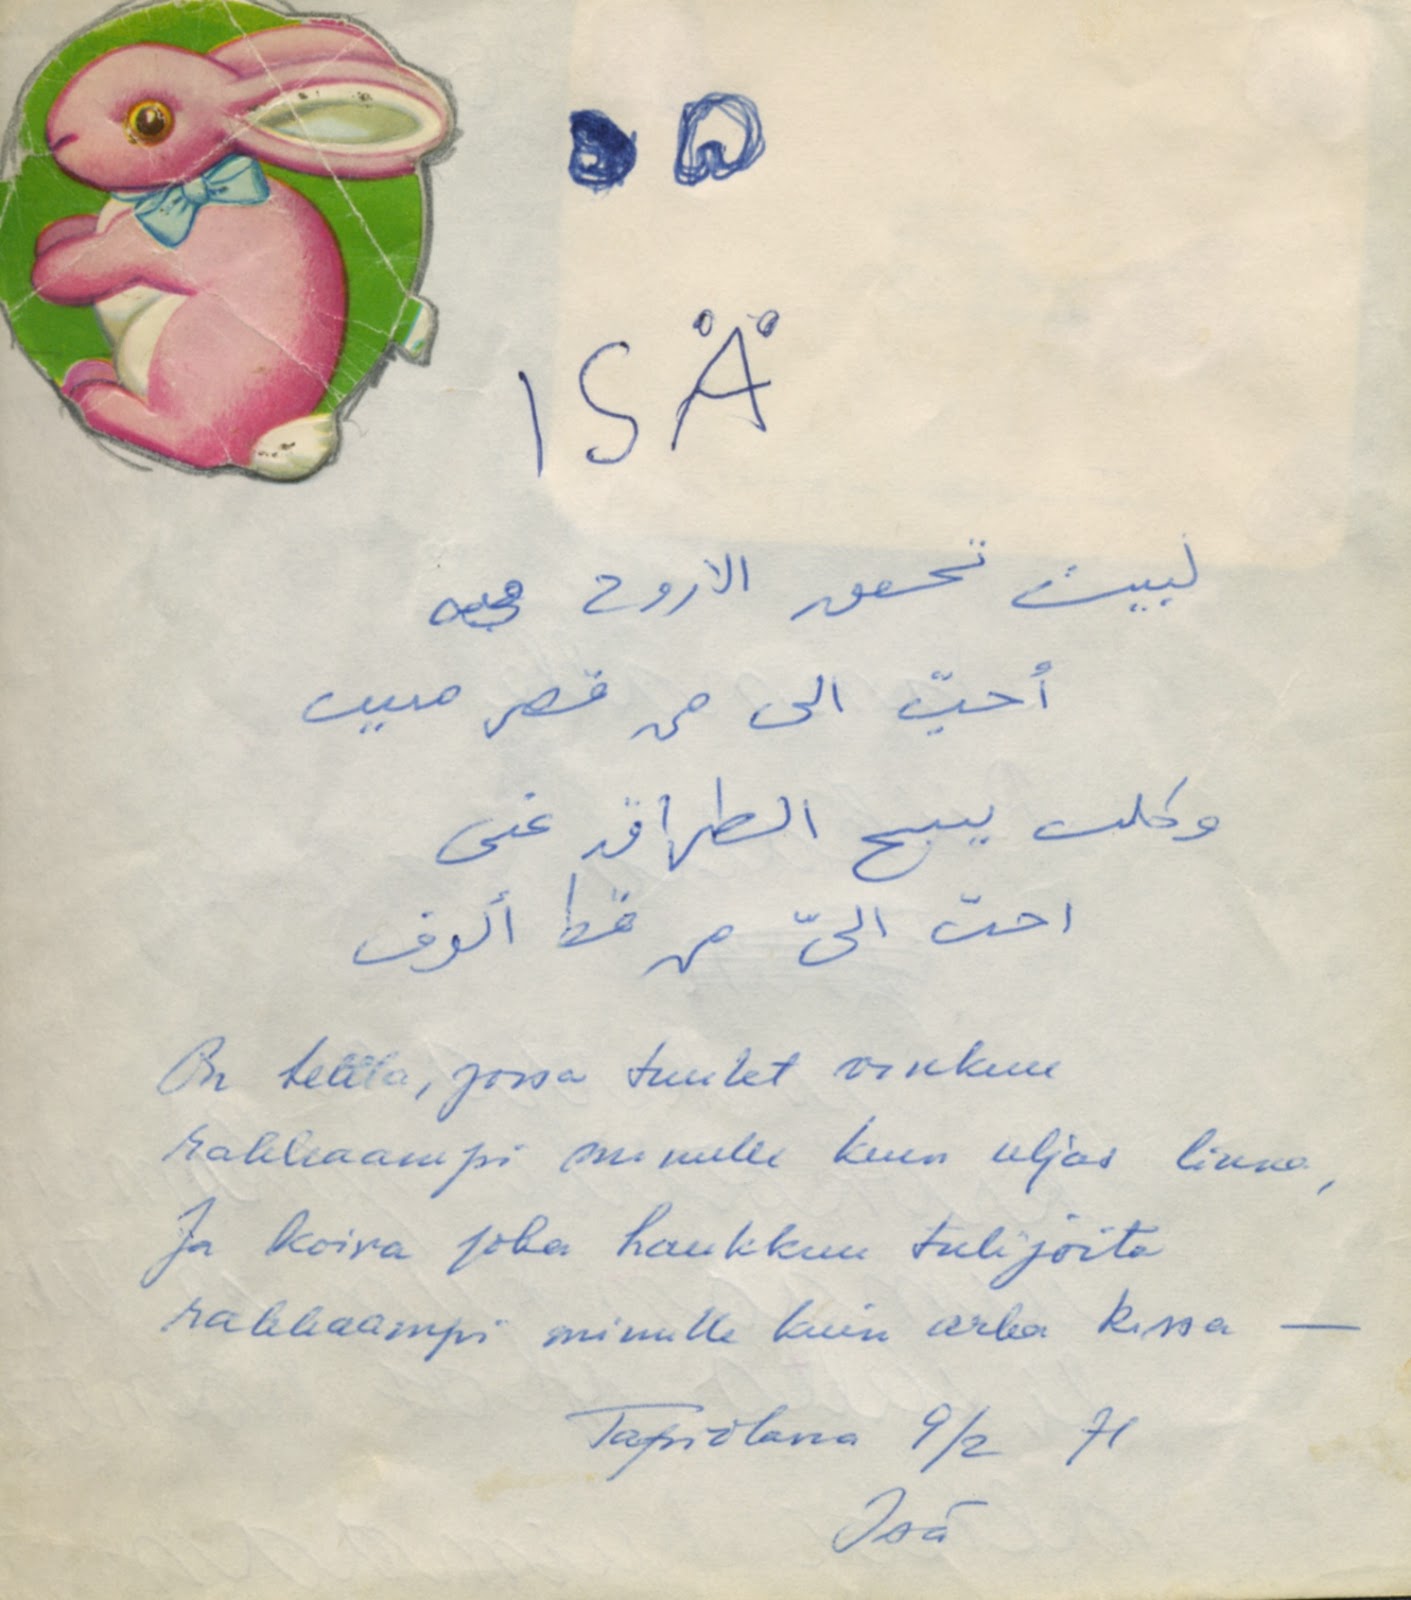 ISÄ
لبيت تحفق الاروح فيه
أحبّ الى من قصر منيف
وكلب ينبح الطراق عنى
احبّ الىّ من قط ألوف
On teltta, jossa tuulet vinkuu
rakkaampi minulle kuin uljas linna,
Ja koira joka haukkuu tulijoita
rakkaampi minulle kuin arka kissa —
Tapiolassa 9/2 71
Isä